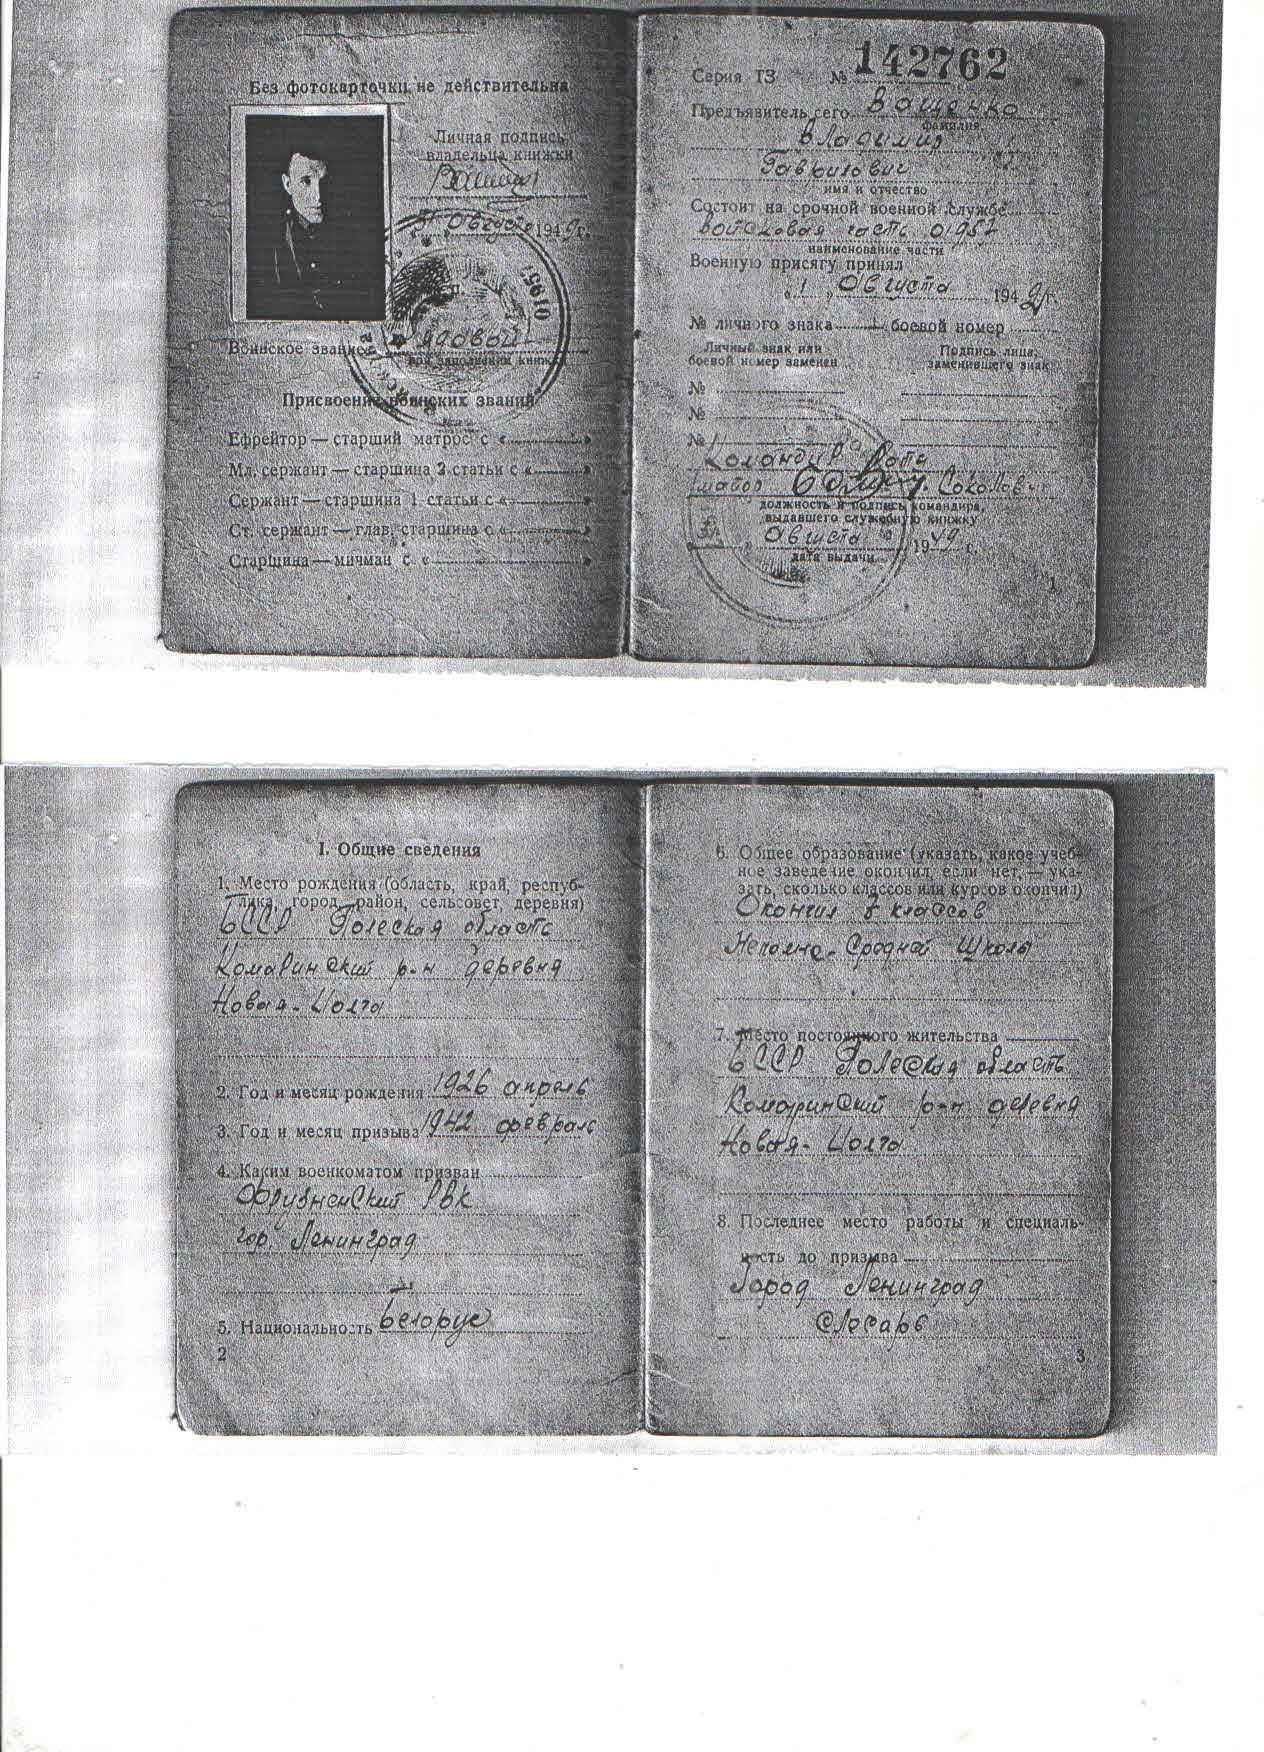 Без фотокарточки не действительна
Личная подпись
владельца книжки
августа 1949 г.
01957
Воинское звание рядовой
Присвоение воинских званий
Ефрейтор — старший матрос с « »
Мл. сержант — старшина 2 статьи с « »
Сержант — старшина 1 статьи с « »
Ст. сержант — глав. старшина с « »
Старшина — мичман с « »
Серия ТЗ № 142762
Предъявитель сего Ващенко
фамилия
Владимир
Гаврилович
имя и отчество
Состоит на срочной военной службе
войсковая часть 01957
наименование части
Военную присягу принял
« 1 » Августа 1942 г.
№ личного знака — боевой номер
Личный знак или
боевой номер заменен
Подпись лица,
заменившего знак
№
№
№
Командир роты
майор Соколов
должность и подпись командира,
выдавшего служебную книжку
31 » Августа 1949 г.
дата выдачи
1
I. Общие сведения
1. Место рождения (область, край, респуб-
лика, город, район, сельсовет, деревня)
БССР Полеская область
Комаринский р-н деревня
Новая-Иолча
2. Год и месяц рождения 1926 апрель
3. Год и месяц призыва 1942 февраль
4. Каким военкоматом призван
Фрунзенский РВК
гор. Ленинград
5. Национальность Белорус
2
6. Общее образование (указать, какое учеб-
ное заведение окончил, если нет, — ука-
зать, сколько классов или курсов окончил)
Окончил 7 классов
Неполно-Средней Школы
7. Место постоянного жительства
БССР Полеская область
Комаринский р-н деревня
Новая-Иолча
8. Последнее место работы и специаль-
ность до призыва
Город Ленинград
слесарь
3